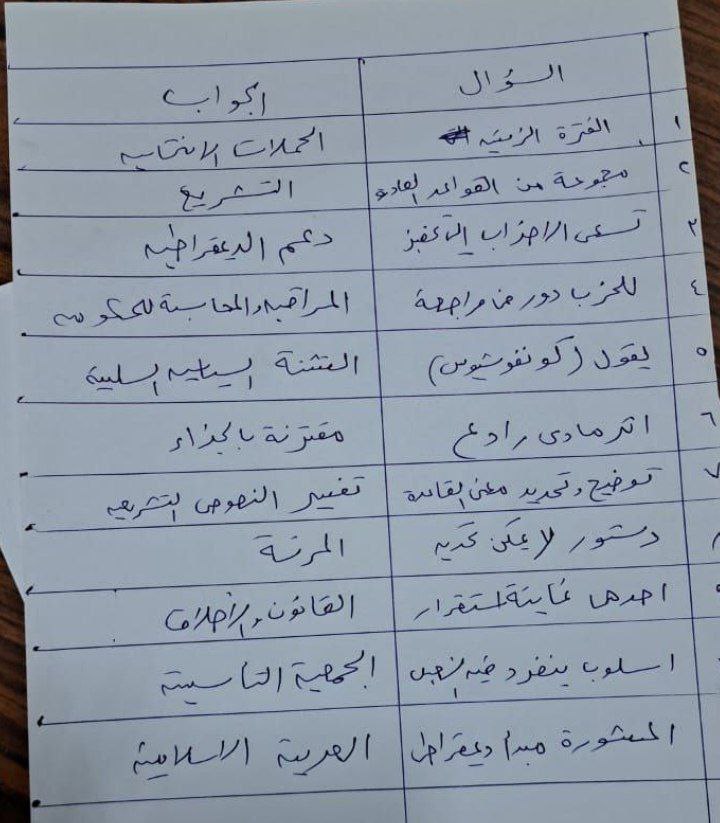 السؤال الجواب
١ الفترة الزمنية الحملات الانتخابية
٢ مجموعة من القواعد العادة التشريع
٣ تسعى الاحزاب الى تحفيز دعم الديمقراطيه
٤ للحزب دور في مواجهة المراقبه والمحاسبة للحكومه
٥ يقول (كونفوشيوس) السياسيه السلبية
٦ اثر مادي رادع مقترنة بالجزاء
٧ توضيح وتحديد معنى القاعدة تفسير النصوص التشريعيه
دستور لا يمكن المرنة
احدها غاية استقرار القانون والأخلاق
اسلوب ينفرد فيه الجمعية التأسيسية
المشورة مبدأ ديمقراطي العربية الاسلامية